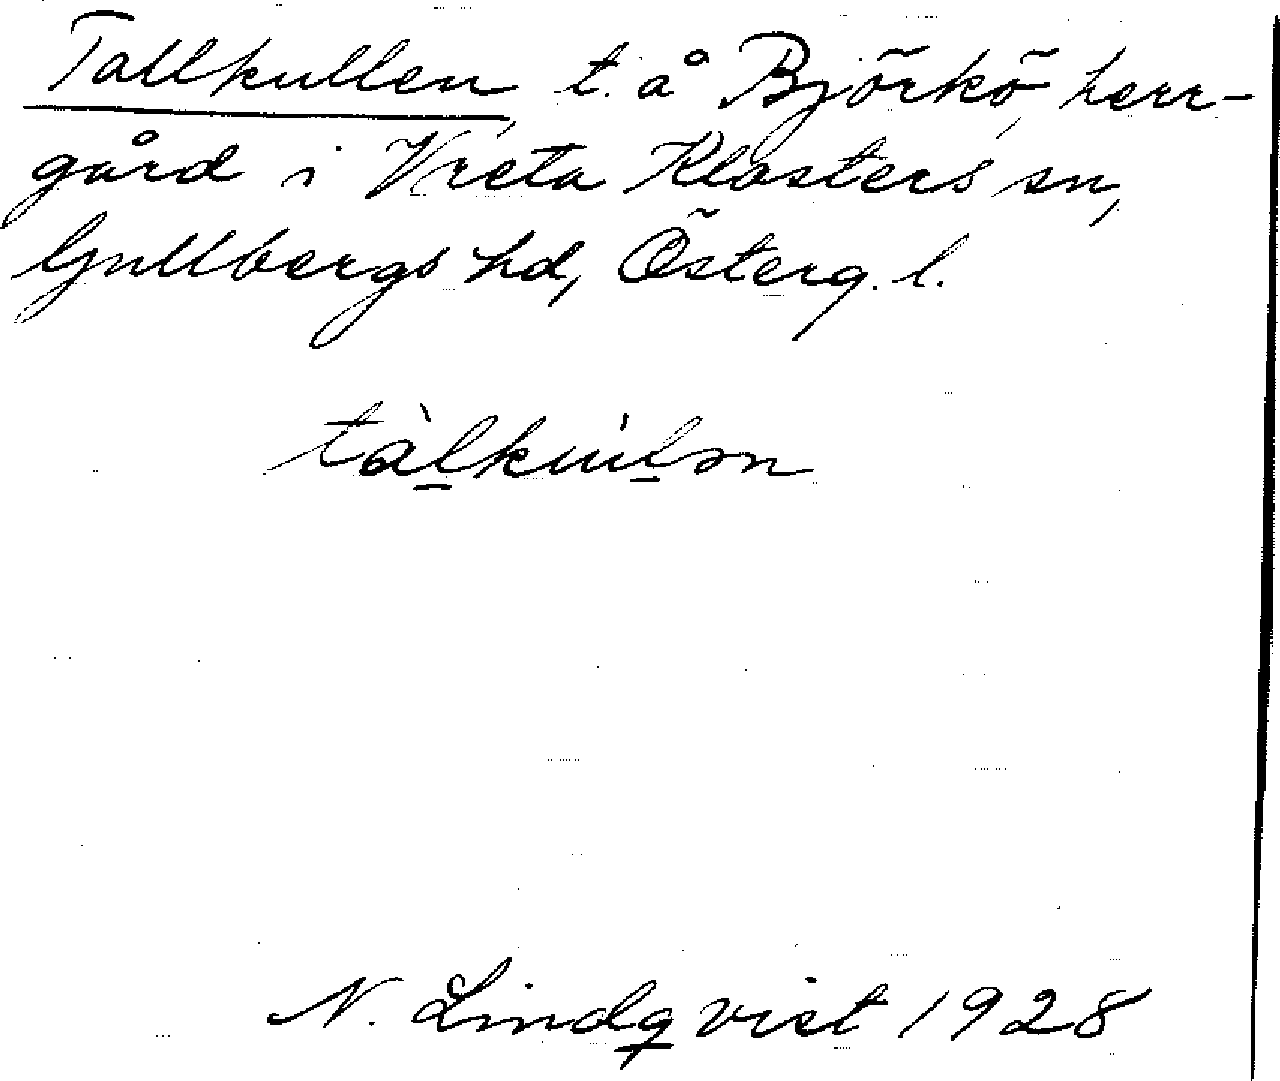 Tallkullen, t. å Björkö, herr-
gård i Vreta Klosters sn,
Gullbergs hd, Österg. l.
tàlkúlən
N. Lindqvist 1928